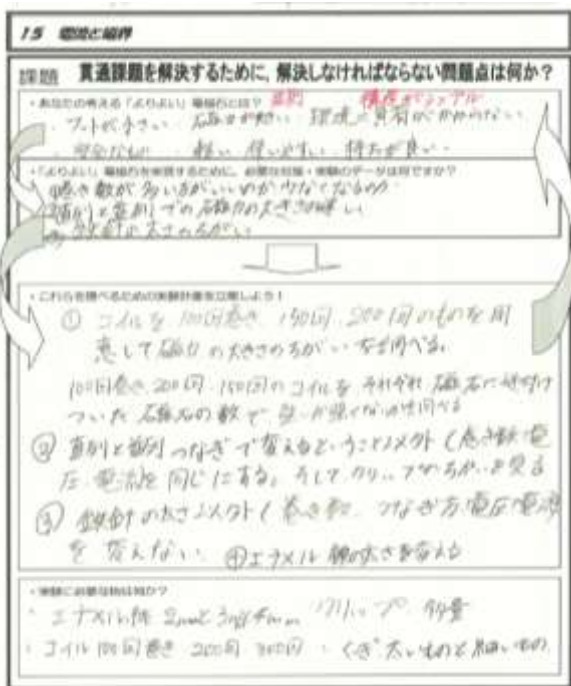 15 電流と磁界
課題 貫通課題を解決するために、解決しなければならない問題点は何か？
・あなたの考える「よりよい」電磁石とは？
コストが小さい 磁力が強い 環境に負荷がかからない
安全なもの 軽い 使いやすい 持ちが良い
・「よりよい」電磁石を実現するために、必要な対策・実験のデータは何ですか？
①巻き数が多い方がいいのか少なくなるのか
②直列と並列での磁力の大きさの違い
・これらを調べるための実験計画を立案しよう！
① コイルを100回巻き、150回、200回のものを用
意して磁力の大きさのちがいを調べる。
100回巻き、200回、150回のコイルをそれぞれ磁石に近付け
ついた磁石の数で
② 直列と並列つなぎで変えるということ以外(巻き数、電
圧、電流)を同じにする。そして、クリップでちがいを見る
③ 鉄針の太さ以外(巻き数、つなぎ方、電圧電流
を変えない。 ④エナメル線の太さを変える
・実験に必要な物は何か？
・エナメル線 2mmと3mm 4mm クリップ 多量
・コイル100回巻き 200回 300回 ・くぎ 太いものと細いもの